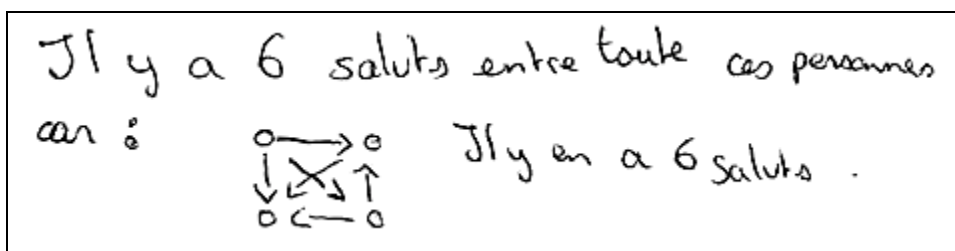 Il y a 6 saluts entre toute ces personnes
car :
Il y en a 6 saluts.